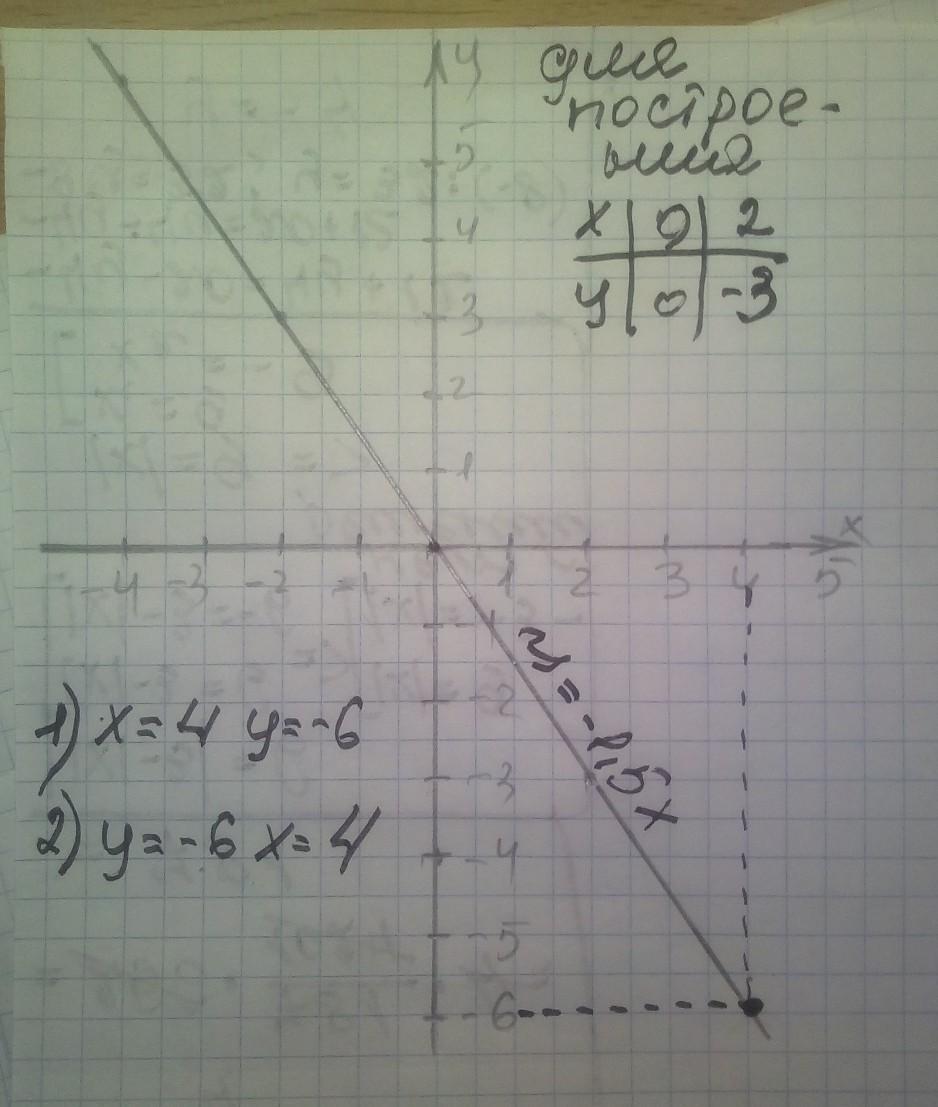 y
для
построе-
ния
x | 0 | 2
y | 0 | -3
5
4
3
2
1
x
-4 -3 -2 -1 1 2 3 4 5
y = -1,5x
-2
-3
-4
-5
-6
1) x = 4 y = -6
2) y = -6 x = 4